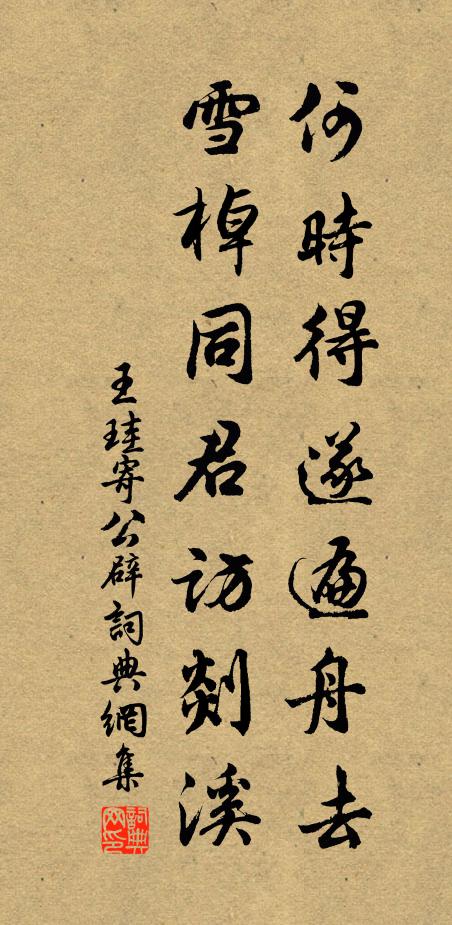 何時得遂遍舟去
雪棹同君訪剡溪
王珪寄公辟詞典網集
詞典网印